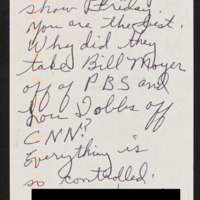 show Friday.
You are the best.
Why did they
take Bill Moyer
off of PBS and
Lou Dobbs off
CNN?
Everything is
so controlled.